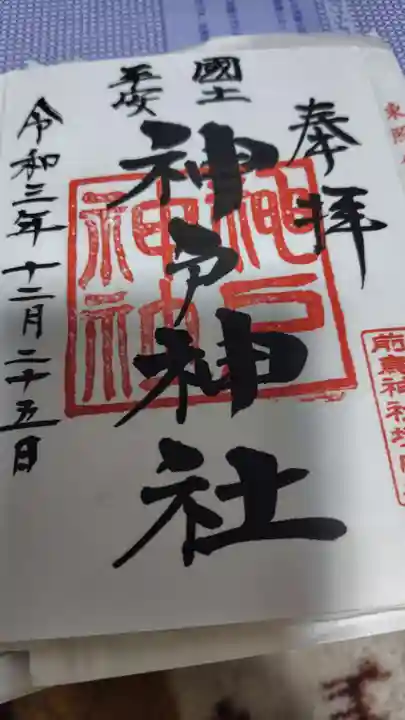 奉拝
國土
平安
神戸神社
神戸
神社
令和三年十二月二十五日
前鳥神社